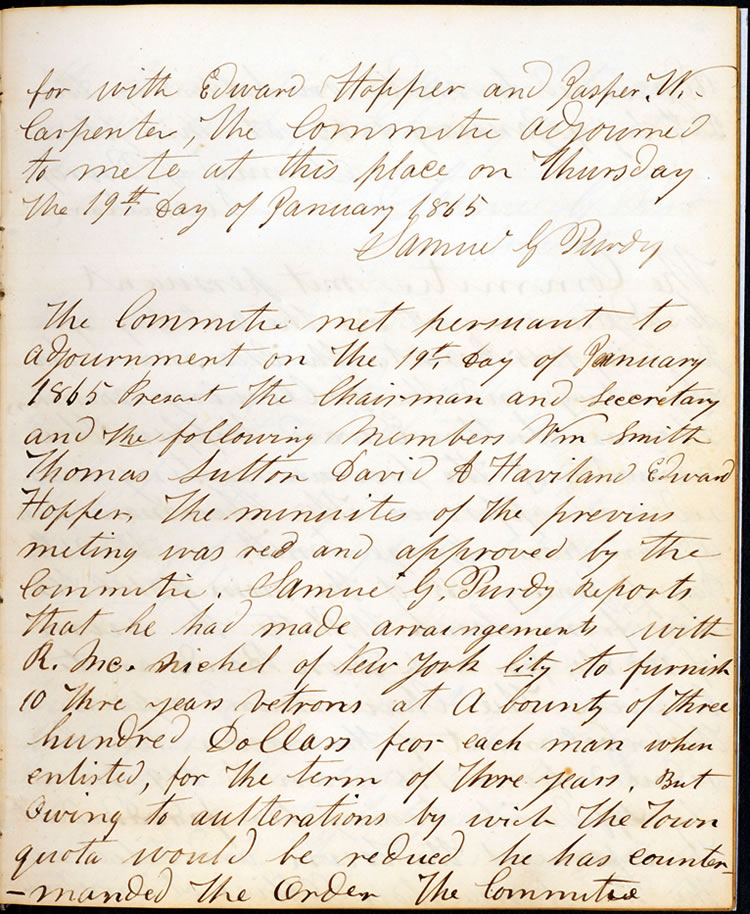 for with Edward Hopper and Jasper. W.
Carpenter, The Committie adjourned
to mete at this place on Thursday
the 19th Day of January 1865
Samuel G Purdy
The Committie met persuant to
adjournment on the 19th. Day of January
1865 Present The Chairman and Seccretary
and the following Members Wm Smith
Thomas Sutton David A Haviland Edward
Hopper, The minuites of the previus
meting was red and approved by the
Committie. Samuel G. Purdy Reports
that he had made arraingements with
R. Mc. Nichel of New York City to furnish
10 thre years vetrons at A bounty of three
hundred Dollars feor each man when
enlisted, for the term of thre years. But
Owing to autterations by wich The Town
quota would be reduced he has counter-
-manded The Order The Committie